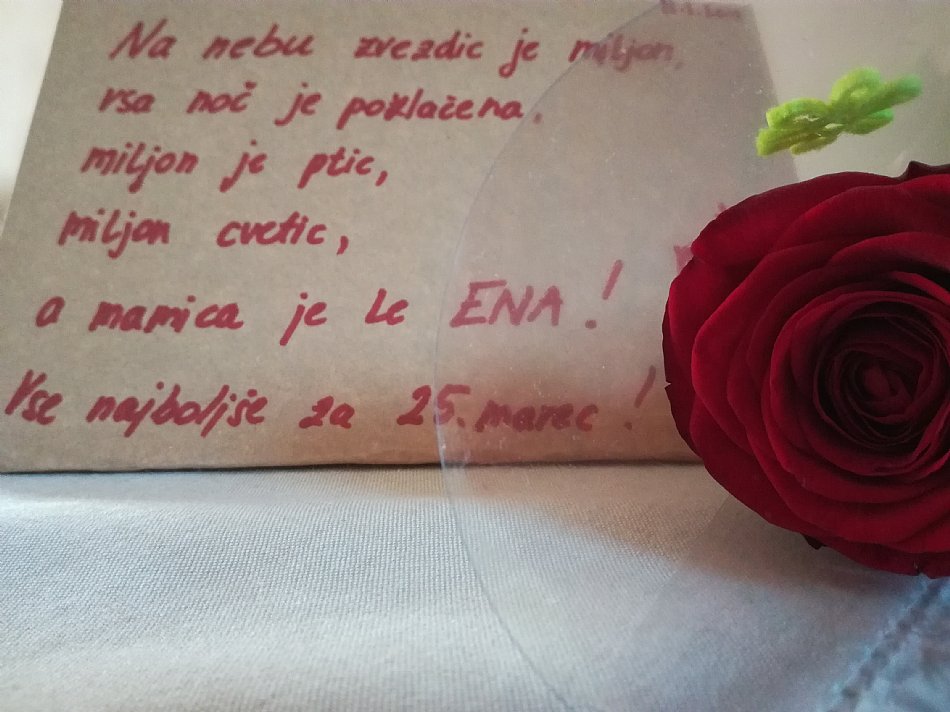 Na nebu zvezdic je miljon,
vsa noč je poklačena.
miljon je ptic,
miljon cvetic,
a mamica je le ENA!
Vse najboljše za 25. marec!